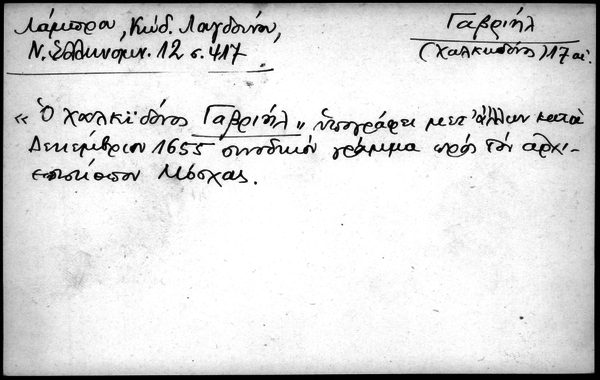 Λάμπρου, Κώδ. Λαγδίνου,
Ν. Ἑλληνομν. 12 σ. 417.
Γαβριήλ
(Χαλκηδόνος) 17 αἰ.
« Ὁ Χαλκηδόνος Γαβριήλ » ὑπογράφει μετ' ἄλλων κατὰ
Δεκέμβριον 1655 συνοδικόν γράμμα πρός τόν ἀρχι-
επίσκοπον Μόσχας.